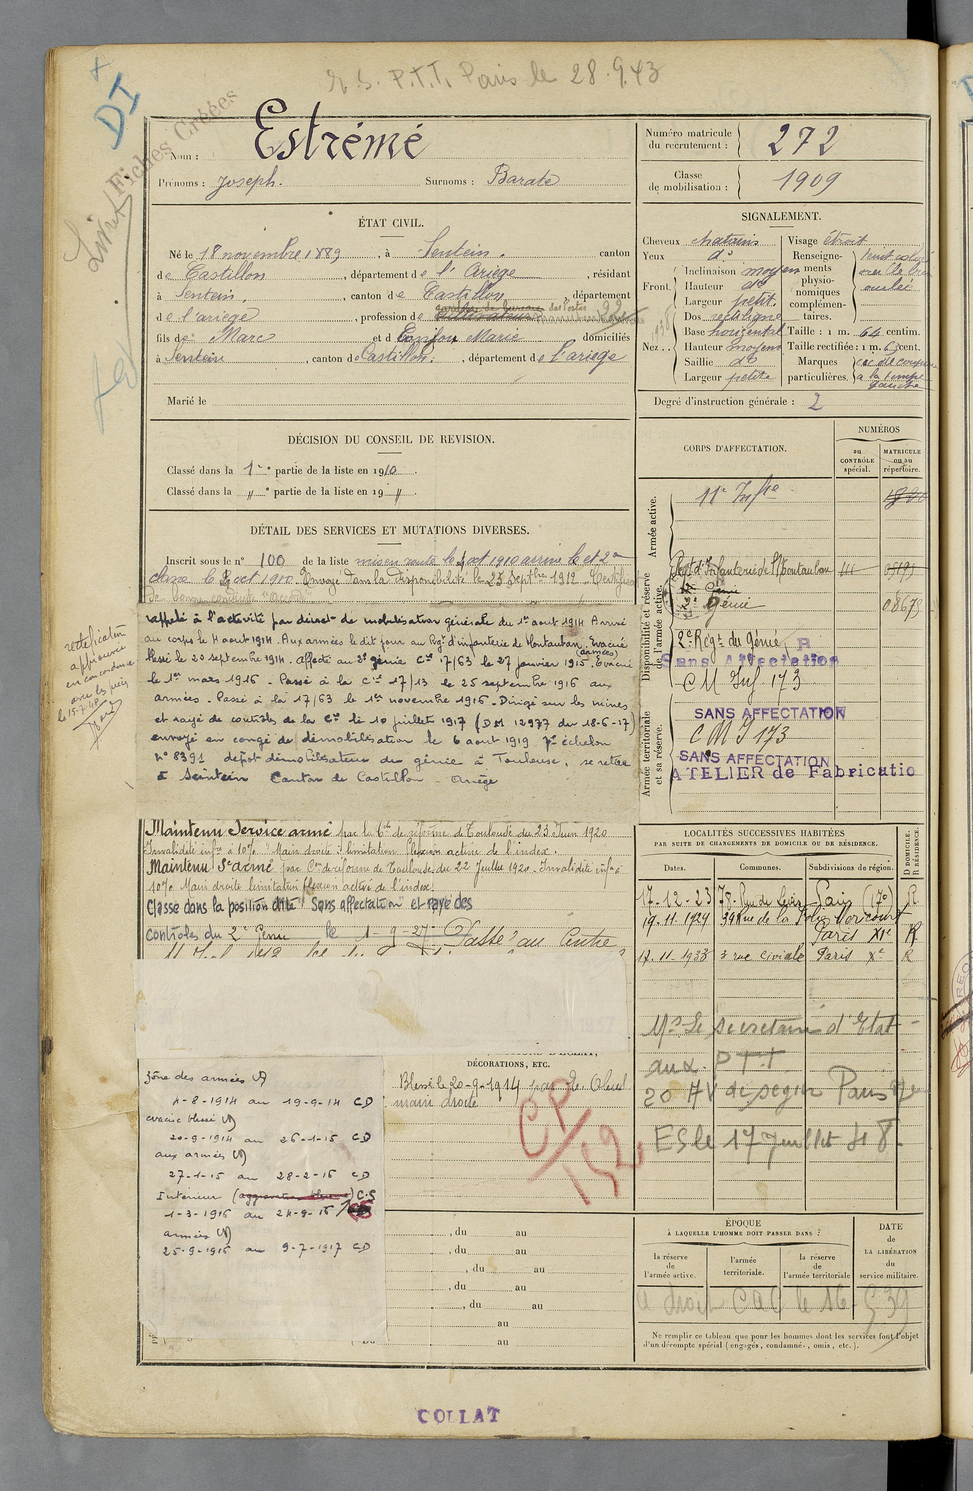 P.T.T. Paris le 28.9.43
DI
Fiches Créées
Nom : Estrémé
Prénoms : Joseph. Surnoms : Barate
Numéro matricule du recrutement : 272
Classe de mobilisation : 1909
ÉTAT CIVIL.
Né le 18 novembre 1889, à Sentein, canton
de Castillon, département de l'Ariège, résidant
à Sentein, canton de Castillon, département
de l'ariège, profession de
fils de Marc et de Marie domiciliés
à Sentein, canton de Castillon, département de l'ariège
Marié le
SIGNALEMENT.
Cheveux chatains Visage étroit
Yeux do Renseignements physionomiques complémentaires.
Front. Inclinaison moyen
Hauteur do
Largeur petit.
Nez. Dos rectiligne
Base horizontal Taille : 1 m. 64 centim.
Hauteur moyenne Taille rectifiée : 1 m. 65 cent.
Saillie do Marques particulières. cic de coupure à la tempe gauche
Largeur petite
Degré d'instruction générale : 2
DÉCISION DU CONSEIL DE REVISION.
Classé dans la 1re partie de la liste en 1910.
Classé dans la " partie de la liste en 19 "
DÉTAIL DES SERVICES ET MUTATIONS DIVERSES.
Inscrit sous le n° 100 de la liste mis en route le oct 1910 arrivé le et 2e
classe le oct 1910. Envoyé dans la disponibilité le 25 Septbre 1912. Certificat
de bonne conduite "accordé"
rappelé à l'activité par décret de mobilisation générale du 1er aout 1914 Arrivé
au corps le 4 aout 1914. Aux armées le dit jour au Rgt d'infanterie de Montauban. Evacué
(armées)
blessé le 20 septembre 1914. Affecté au 2e génie Cie 17/63 le 27 janvier 1915. Evacué
le 1er mars 1916 - Passé à la Cie 17/13 le 25 septembre 1916 aux
armées. Passé à la 17/63 le 1er novembre 1916. Dirigé sur les mines
et rayé des contrôles de la Cie le 10 juillet 1917 (DM 12977 du 18-6-17)
envoyé en congé de démobilisation le 6 aout 1919 7e échelon
n° 8391 dépot démobilisateur du génie à Toulouse, se retire
à Seintein Canton de Castillon - Ariège
rectification
approuvée
en concordance
avec les
le 15-7-40
Maintenu Service armé par la Con de réforme de Toulouse du 23 Juin 1920
Invalidité infre à 10% "Main droite : limitation flexion active de l'index.
Maintenu Sce armé par Con de réforme de Toulouse du 22 Juillet 1920. Invalidité infre à
10% Main droite limitation flexion active de l'index.
Classé dans la position dite "Sans affectation" et rayé des
contrôles du 2e Génie le 1-9-27. Passé au Centre
CORPS D'AFFECTATION.
NUMÉROS
au CONTRÔLE spécial.
MATRICULE ou au répertoire.
Armée active.
11e Infie
Disponibilité et réserve de l'armée active.
Regt d'Infanterie de Montauban
Génie
08675
2e Régt du Génie
Sans Affectation
CM Inf 173
Armée territoriale et sa réserve.
SANS AFFECTATION
CMI 173
SANS AFFECTATION
ATELIER de Fabricatio
LOCALITÉS SUCCESSIVES HABITÉES
PAR SUITE DE CHANGEMENTS DE DOMICILE OU DE RÉSIDENCE.
Dates. Communes. Subdivisions de région. D DOMICILE. R RÉSIDENCE.
17-12-23 78. Rue de Paris (17e) R
19.11.1924 39 Rue de la Folie Méricourt Paris XIe R
17.11-1933 3 rue Civiale Paris Xe R
Mr Le secrétaire d'Etat
aux PTT
20 AV de Segur Paris
ES le 17 Juillet 48
zône des armées
4-8-1914 au 19-9-14 CD
évacué blessé
20-9-1914 au 26-1-15 CD
aux armées
27-1-15 au 28-2-16 CD
Intérieur C.S
1-3-1916 au 24-9-16
armées
25-9-1916 au 9-7-1917 CD
DÉCORATIONS, ETC.
Blessé le 20-9-1914 par éc. Obus
main droite
CP/152
, du au
, du au
, du au
, du au
, du au
au
au
ÉPOQUE
À LAQUELLE L'HOMME DOIT PASSER DANS :
la réserve de l'armée active.
l'armée territoriale.
la réserve de l'armée territoriale
DATE de LA LIBÉRATION du service militaire.
a droit CAC le 16 5 39
Ne remplir ce tableau que pour les hommes dont les services font l'objet
d'un décompte spécial (engagés, condamnés, omis, etc.).
COLLAT